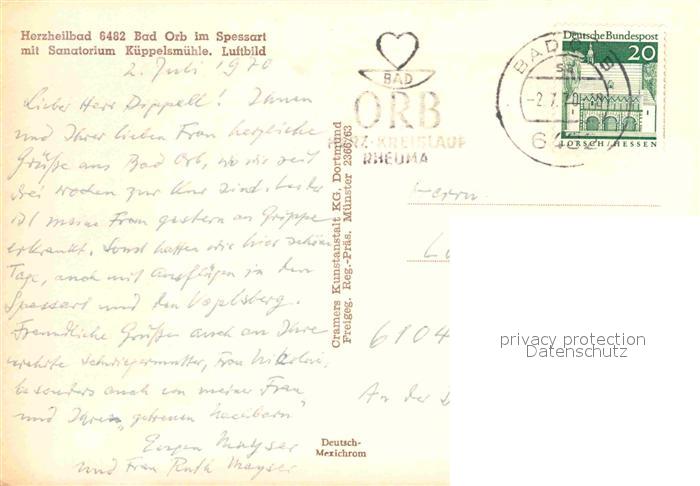 Herzheilbad 6482 Bad Orb im Spessart
mit Sanatorium Küppelsmühle. Luftbild
2. Juli 1970
Lieber Herr Dippell! Ihnen
und Ihrer lieben Frau herzliche
Grüße aus Bad Orb, wo wir seit
drei Wochen zur Kur sind. Leider
ist meine Frau gestern an Grippe
erkrankt. Sonst hatten wir hier schöne
Tage, auch mit Ausflügen in den
Spessart und den Vogelsberg.
Freundliche Grüße auch an Ihre
verehrte Schwiegermutter, Frau Nikolai,
besonders auch von meiner Frau
und Ihren "getreuen Nachbarn"
Eugen Mayser
und Frau Ruth Mayser
BAD
ORB
HERZ-KREISLAUF
RHEUMA
BAD ORB
-2.7.70
6482
Deutsche Bundespost
20
LORSCH/HESSEN
Cramers Kunstanstalt KG. Dortmund
Freigeg. Reg.-Präs. Münster 2366/63
Herrn
6104
An der
Deutsch-
Mexichrom
privacy protection
Datenschutz